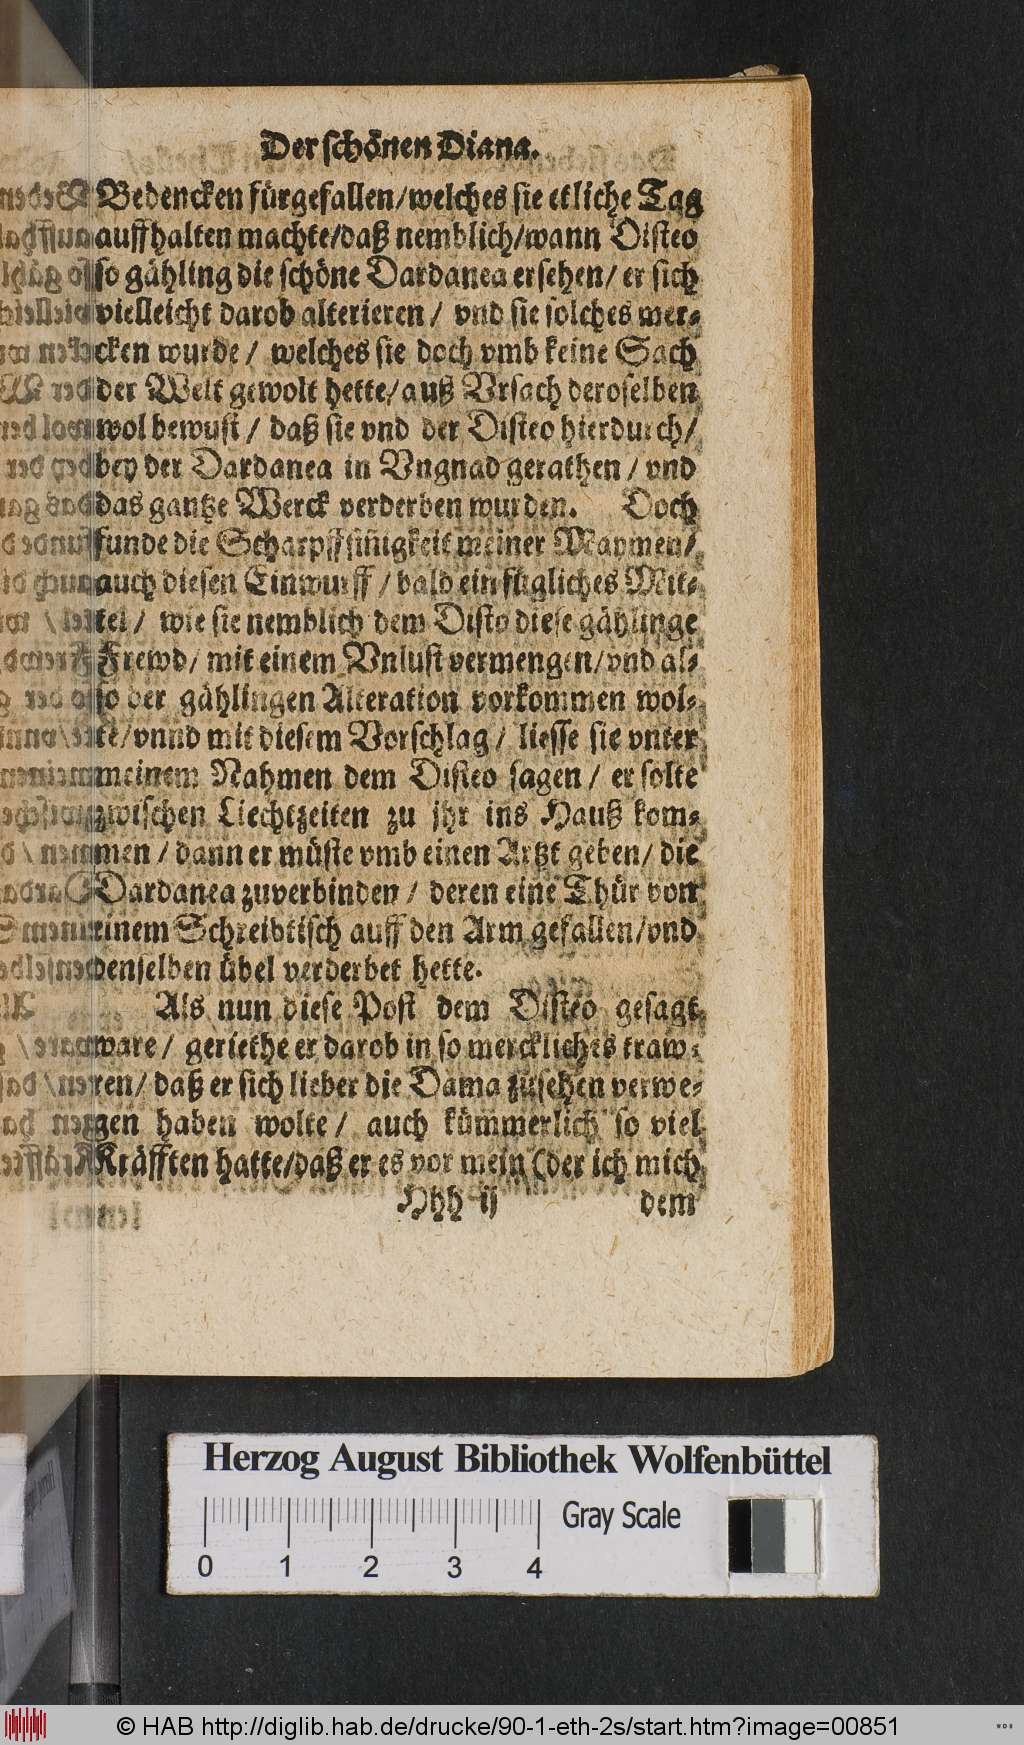 Der schönen Diana.
Bedencken fürgefallen/welches sie etliche Tag
auffhalten machte/daß nemblich/wann Disteo
so gähling die schöne Dardanea ersehen/ er sich
vielleicht darob alterieren / vnd sie solches mer-
cken wurde / welches sie doch vmb keine Sach
der Welt gewolt hette/auß Vrsach deroselben
wol bewust / daß sie vnd der Disteo hierdurch/
bey der Dardanea in Vngnad gerathen / vnd
das gantze Werck verderben wurden. Doch
funde die Scharpffsiñigkeit meiner Maymen/
auch diesen Einwurff / bald ein fügliches Mit-
tel / wie sie nemblich dem Disto diese gählinge
Frewd/ mit einem Vnlust vermengen/vnd al-
so der gählingen Alteration vorkommen wol-
te/vnnd mit diesem Vorschlag / liesse sie vnter
meinem Nahmen dem Disteo sagen / er solte
zwischen Liechtzeiten zu jhr ins Hauß kom-
men / dann er müste vmb einen Artzt geben/ die
Dardanea zuverbinden / deren eine Thür von
einem Schreibtisch auff den Arm gefallen/vnd
denselben übel verderbet hette.
Als nun diese Post dem Disteo gesagt
ware / geriethe er darob in so merckliches traw-
ren/ daß er sich lieber die Dama zusehen verwe-
gen haben wolte / auch kümmerlich so viel
Kräfften hatte/daß er es vor mein (der ich mich
Hhh ij dem
Herzog August Bibliothek Wolfenbüttel
0 1 2 3 4 Gray Scale
© HAB http://diglib.hab.de/drucke/90-1-eth-2s/start.htm?image=00851